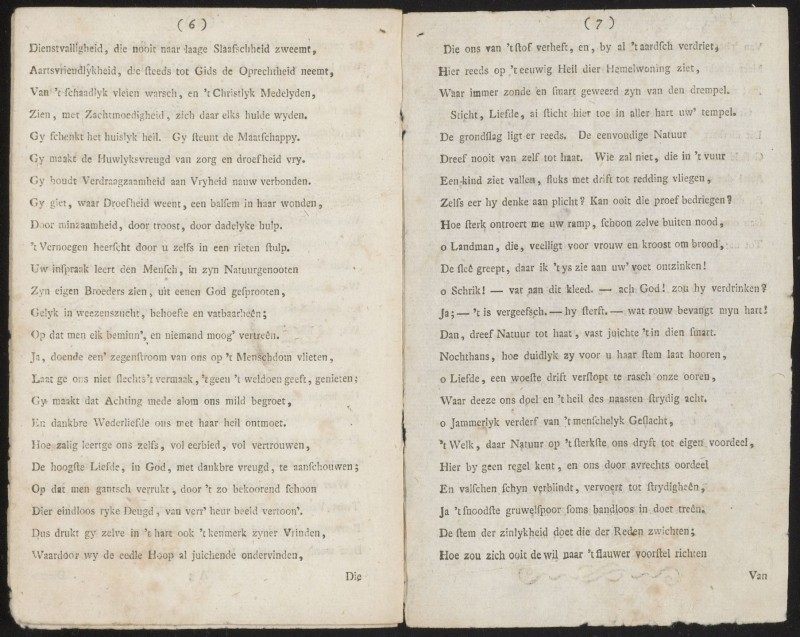 ( 6 )
Dienstvalligheid, die nooit naar laage Slaafschheid zweemt,
Aartsvriendlykheid, die steeds tot Gids de Oprechtheid neemt,
Van 't schaadlyk vleien warsch, en 't Christlyk Medelyden,
Zien, met Zachtmoedigheid, zich daar elks hulde wyden.
Gy schenkt het huislyk heil. Gy steunt de Maatschappy.
Gy maakt de Huwlyksvreugd van zorg en droefheid vry.
Gy houdt Verdraagzaamheid aan Vryheid nauw verbonden.
Gy giet, waar Droefheid weent, een balsem in haar wonden,
Door minzaamheid, door troost, door dadelyke hulp.
't Vernoegen heerscht door u zelfs in een rieten stulp.
Uw inspraak leert den Mensch, in zyn Natuurgenooten
Zyn eigen Broeders zien, uit eenen God gesprooten,
Gelyk in weezenszucht, behoefte en vatbaarheên;
Op dat men elk beminn', en niemand moog' vertreên.
Ja, doende een' zegenstroom van ons op 't Menschdom vlieten,
Laat ge ons niet slechts 't vermaak, 't geen 't weldoen geeft, genieten:
Gy maakt dat Achting mede alom ons mild begroet,
En dankbre Wederliefde ons met haar heil ontmoet.
Hoe zalig leertge ons zelfs, vol eerbied, vol vertrouwen,
De hoogste Liefde, in God, met dankbre vreugd, te aanschouwen;
Op dat men gantsch verrukt, door 't zo bekoorend schoon
Dier eindloos ryke Deugd, van verr' heur beeld vertoon'.
Dus drukt gy zelve in 't hart ook 't kenmerk zyner Vrinden,
Waardoor wy de eedle Hoop al juichende ondervinden,
Die
( 7 )
Die ons van 't stof verheft, en, by al 't aardsch verdriet,
Hier reeds op 't eeuwig Heil dier Hemelwoning ziet,
Waar immer zonde en smart geweerd zyn van den drempel.
Sticht, Liefde, ai sticht hier toe in aller hart uw' tempel.
De grondslag ligt er reeds. De eenvoudige Natuur
Dreef nooit van zelf tot haat. Wie zal niet, die in 't vuur
Een kind ziet vallen, fluks met drift tot redding vliegen,
Zelfs eer hy denke aan plicht? Kan ooit die proef bedriegen?
Hoe sterk ontroert me uw ramp, schoon zelve buiten nood,
o Landman, die, veelligt voor vrouw en kroost om brood,
De sleê greept, daar ik 't ys zie aan uw' voet ontzinken!
o Schrik! — vat aan dit kleed. — ach God! zou hy verdrinken?
Ja; — 't is vergeefsch. — hy sterft. — wat rouw bevangt myn hart!
Dan, dreef Natuur tot haat, vast juichte 't in dien smart.
Nochthans, hoe duidlyk zy voor u haar stem laat hooren,
o Liefde, een woeste drift verstopt te rasch onze ooren,
Waar deeze ons doel en 't heil des naasten strydig acht.
o Jammerlyk verderf van 't menschelyk Geslacht,
't Welk, daar Natuur op 't sterkste ons dryft tot eigen voordeel,
Hier by geen regel kent, en ons door avrechts oordeel
En valschen schyn verblindt, vervoert tot strydigheên,
Ja 't snoodste gruwelspoor soms bandloos in doet treên.
De stem der zinlykheid doet die der Reden zwichten;
Hoe zou zich ooit de wil naar 't flauwer voorstel richten
Van